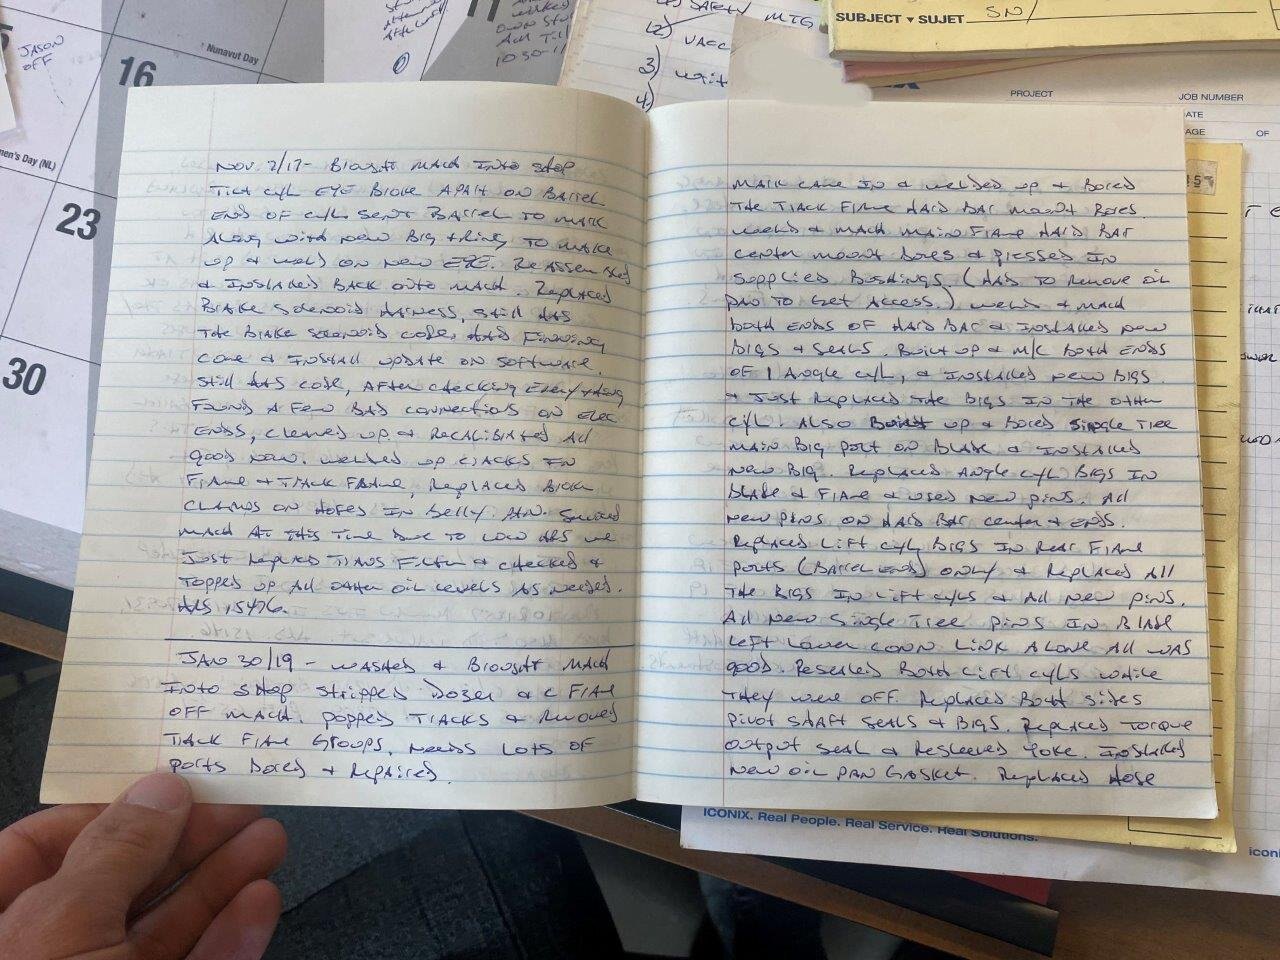 JASON
OFF
16
Nunavut Day
23
30
11
10 30-11
2)
3)
4)
MTG
SUBJECT ▾ SUJET SN/
PROJECT
JOB NUMBER
PAGE
OF
Nov. 2/17 - Brought mach Into shop
Tilt cyl EYE Broke APart on Barrel
END OF cyl. sent Barrel to mark
Along with new Brg + Ring to make
up & weld on new EYE. ReAssembled
& Installed BACK onto mach. Replaced
Brake Solenoid Harness, still HAS
the Brake solenoid code, HAD Finning
come & Install update on software.
still HAS code, After checking Everything
Found A Few BAD connections on Elec
ENDS, cleaned up & Recalibrated All
good now. welded up cracks IN
Frame & Track Frame, Replaced Broken
clamps on Hoses In Belly. Serviced
mach At this time Due to low HRS we
Just Replaced Trans Filter & checked &
topped up All other oil levels As needed.
HRS 15476.
JAN 30/19 - washed & Brought mach
Into shop stripped Dozer & C Frame
OFF mach. popped TRACKS & Removed
Track Frame Groups. Needs Lots OF
ports Bored & Repaired.
Mark came IN & welded up & Bored
the Track Frame HARD BAR mount Bores.
weld & mach main Frame HARD BAR
center mount bores & pressed IN
supplied Bushings (HAD to Remove oil
PAN to Get Access.) weld & mach
both ENDS OF HARD BAR & Installed new
BRGS & Seals. Built up & M/C Both ENDS
OF 1 Angle cyl, & Installed new BRGS.
& Just Replaced the BRGS IN the other
cyl. Also Built up & Bored Single Tree
main Brg port on Blade & Installed
new Brg. Replaced Angle cyl BRGS IN
Blade & Frame & used new pins. All
new pins on HARD BAR center & ENDS.
Replaced Lift cyl BRGS IN Rear Frame
ports (Barrel ENDS) only & Replaced All
the BRGS IN Lift cyls & All new pins.
All new Single Tree pins IN Blade
Left Lower Conn Link Alone All was
good. Resealed Both Lift cyls while
they were off. Replaced Both sides
Pivot Shaft Seals & BRGS. Replaced Torque
output seal & Resleeved Yoke. Installed
new oil pan Gasket. Replaced Hose
ICONIX. Real People. Real Service. Real Solutions.